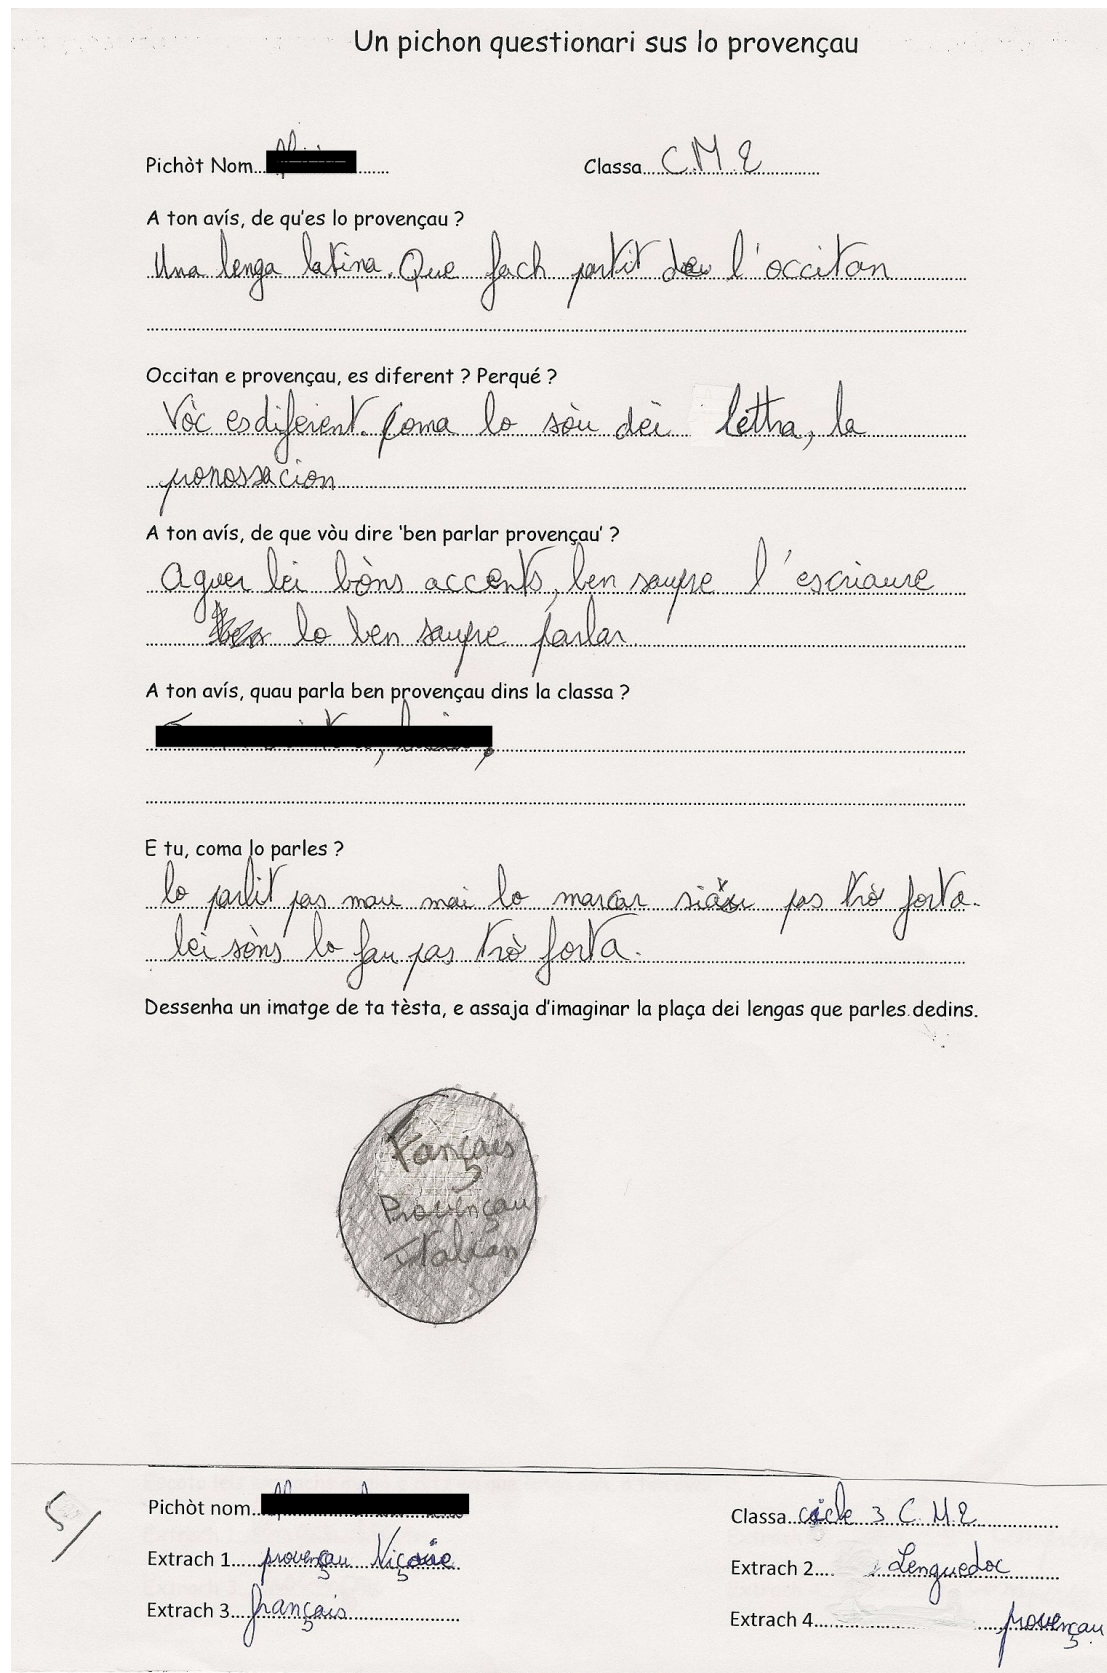 Un pichon questionari sus lo provençau
Pichòt Nom
Classa C.M 2
A ton avís, de qu'es lo provençau ?
Una lenga latina. Que fach partit de l'occitan
Occitan e provençau, es diferent ? Perqué ?
Vòc es diferent. Coma lo sòu dei lettra, la
pronossacion
A ton avís, de que vòu dire 'ben parlar provençau' ?
Aguer lei bòns accents, ben saupre l'escriaure
lo ben saupre parlar.
A ton avís, quau parla ben provençau dins la classa ?
E tu, coma lo parles ?
lo parlit pas mau mai lo marcar siáu pas trò forta.
lei sòns lo fau pas trò forta.
Dessenha un imatge de ta tèsta, e assaja d'imaginar la plaça dei lengas que parles dedins.
Fançais
Provençau
Italian
5/
Pichòt nom
Classa cicle 3 C.M.2
Extrach 1 provençau Niçoise
Extrach 2 Lenguedoc
Extrach 3 français
Extrach 4 provençau